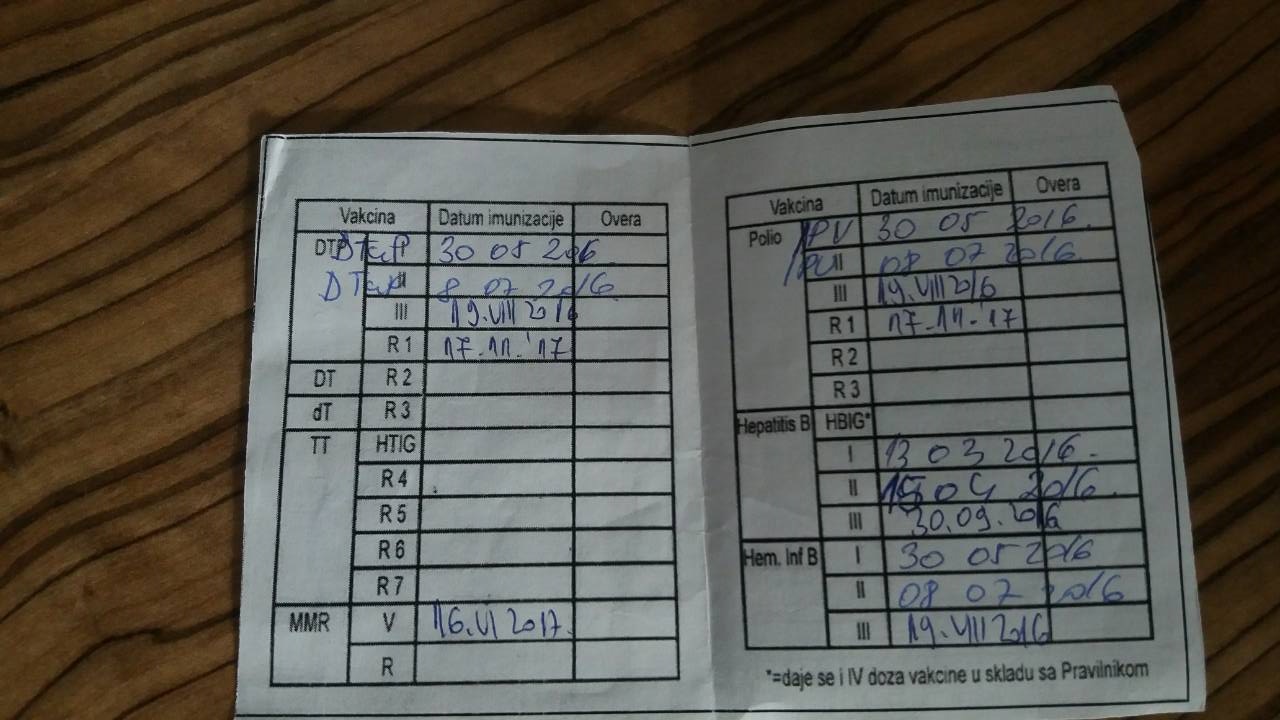 Vakcina Datum imunizacije Overa
DTaP 30 05 2016
DTaP II 8 07 2016.
III 19.VIII 2016
R 1 17.11.'17
DT R 2
dT R 3
TT HTIG
R 4
R 5
R 6
R 7
MMR V 16.VI 2017.
R
Vakcina Datum imunizacije Overa
Polio IPV 30 05 2016.
IPV II 08 07 2016.
III 19.VIII 2016
R 1 17.11.17
R 2
R 3
Hepatitis B HBIG*
I 13 03 2016.
II 04 2016.
III 30.09.2016
Hem. Inf B I 30 05 2016
II 08 07 2016
III 19.VIII 2016
*=daje se i IV doza vakcine u skladu sa Pravilnikom